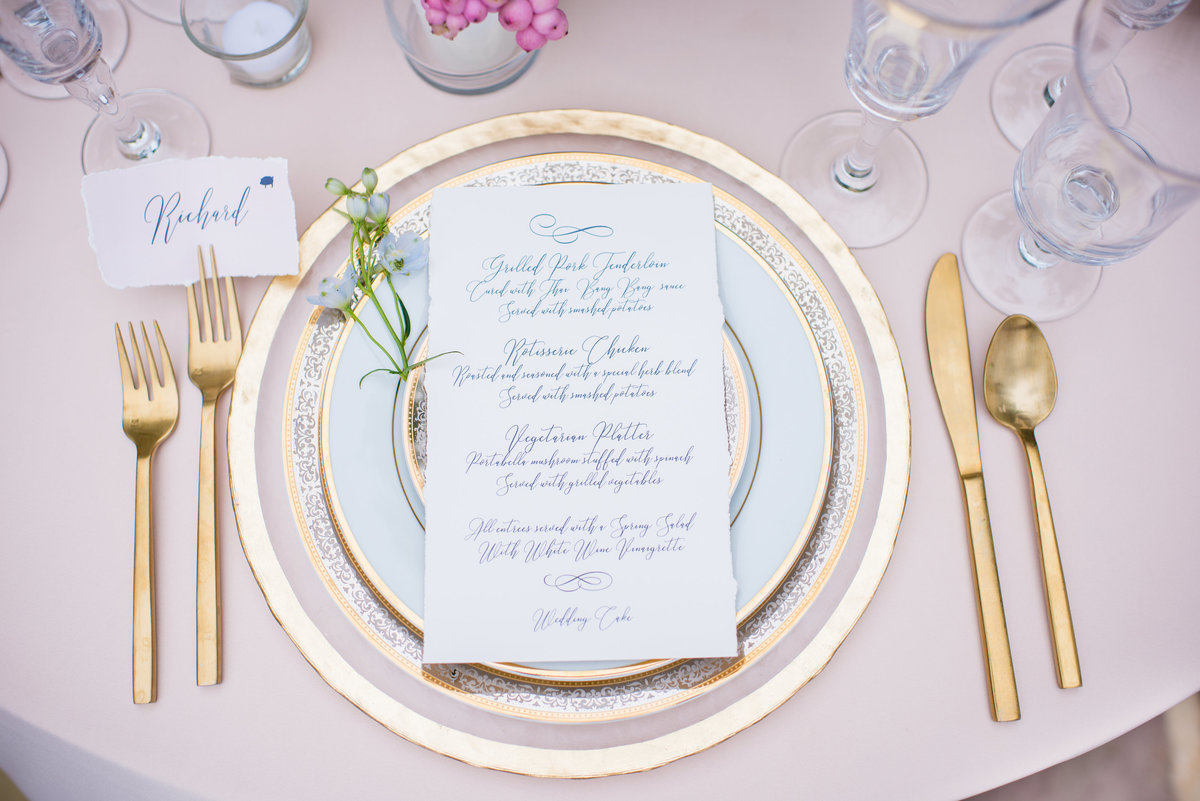 Richard
Grilled Pork Tenderloin
Cured with Thai Bang Bang sauce
Served with smashed potatoes
Rotisserie Chicken
Roasted and seasoned with a special herb blend
Served with smashed potatoes
Vegetarian Platter
Portabella mushroom stuffed with spinach
Served with grilled vegetables
All entrees served with a Spring Salad
With White Wine Vinaigrette
Wedding Cake